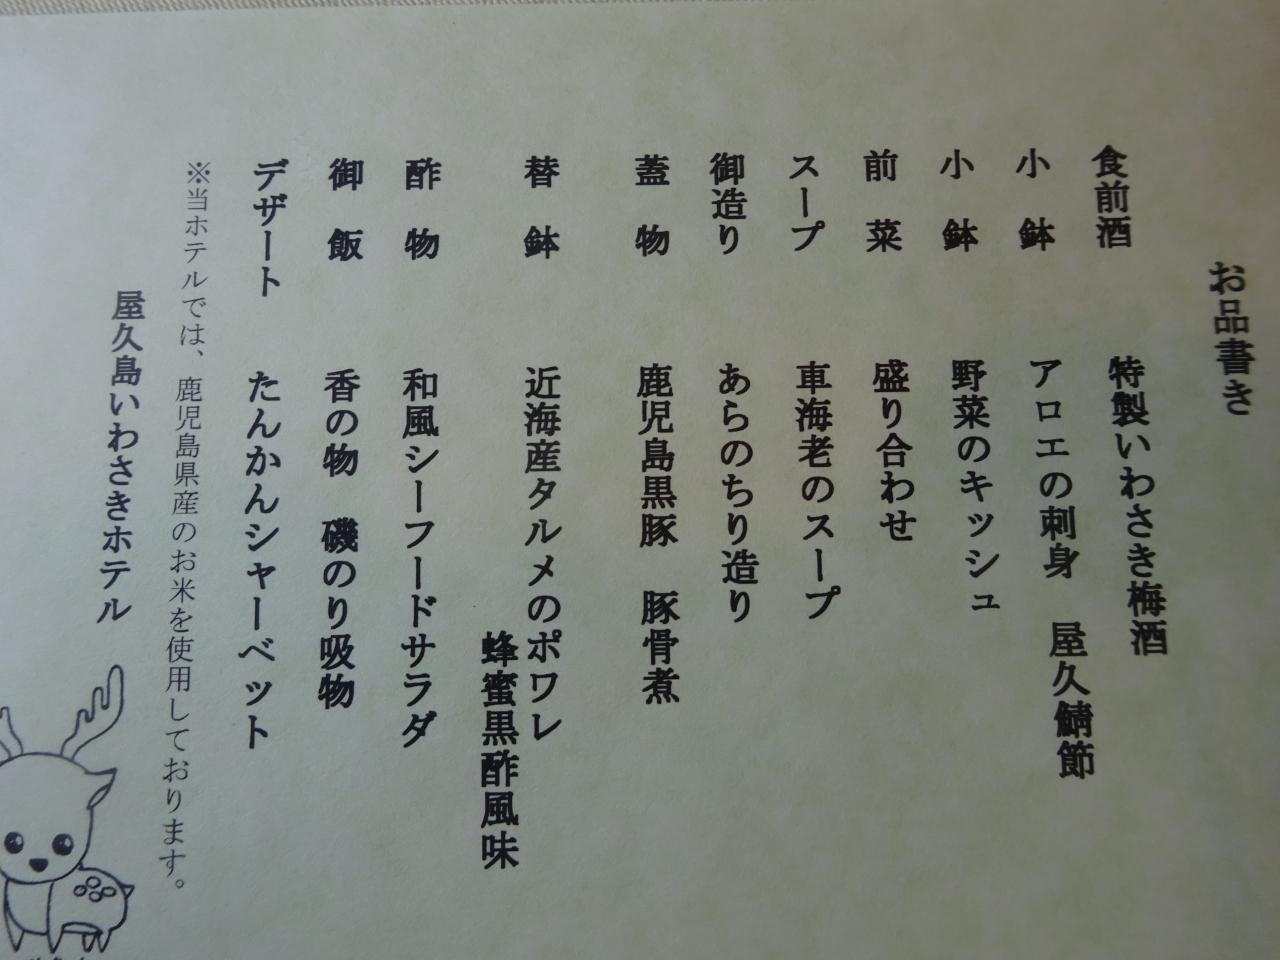 お品書き
食前酒 特製いわさき梅酒
小鉢 アロエの刺身 屋久鯖節
小鉢 野菜のキッシュ
前菜 盛り合わせ
スープ 車海老のスープ
御造り あらのちり造り
蓋物 鹿児島黒豚 豚骨煮
替鉢 近海産タルメのポワレ
蜂蜜黒酢風味
酢物 和風シーフードサラダ
御飯 香の物 磯のり吸物
デザート たんかんシャーベット
※当ホテルでは、鹿児島県産のお米を使用しております。
屋久島いわさきホテル